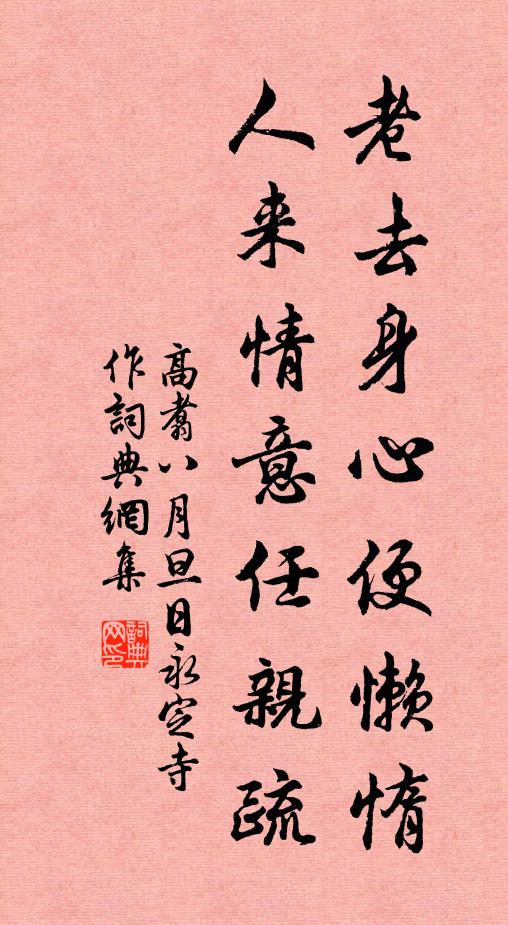 老去身心便懒惰
人来情意任親疏
高翥八月旦日永定寺
作詞典網集
詞典网印